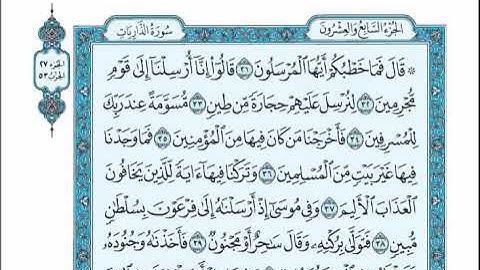 سُورَةُ الذَّارِيَاتِ
الجُزْءُ السَّابِعُ وَالعِشْرُونَ
الجزء ٢٧
الحزب ٥٣
۞ قَالَ فَمَا خَطْبُكُمْ أَيُّهَا ٱلْمُرْسَلُونَ ٣١ قَالُوٓا۟ إِنَّآ أُرْسِلْنَآ إِلَىٰ قَوْمٍ
مُّجْرِمِينَ ٣٢ لِنُرْسِلَ عَلَيْهِمْ حِجَارَةً مِّن طِينٍ ٣٣ مُّسَوَّمَةً عِندَ رَبِّكَ
لِلْمُسْرِفِينَ ٣٤ فَأَخْرَجْنَا مَن كَانَ فِيهَا مِنَ ٱلْمُؤْمِنِينَ ٣٥ فَمَا وَجَدْنَا
فِيهَا غَيْرَ بَيْتٍ مِّنَ ٱلْمُسْلِمِينَ ٣٦ وَتَرَكْنَا فِيهَآ ءَايَةً لِّلَّذِينَ يَخَافُونَ
ٱلْعَذَابَ ٱلْأَلِيمَ ٣٧ وَفِى مُوسَىٰٓ إِذْ أَرْسَلْنَٰهُ إِلَىٰ فِرْعَوْنَ بِسُلْطَٰنٍ
مُّبِينٍ ٣٨ فَتَوَلَّىٰ بِرُكْنِهِۦ وَقَالَ سَٰحِرٌ أَوْ مَجْنُونٌ ٣٩ فَأَخَذْنَٰهُ وَجُنُودَهُۥ